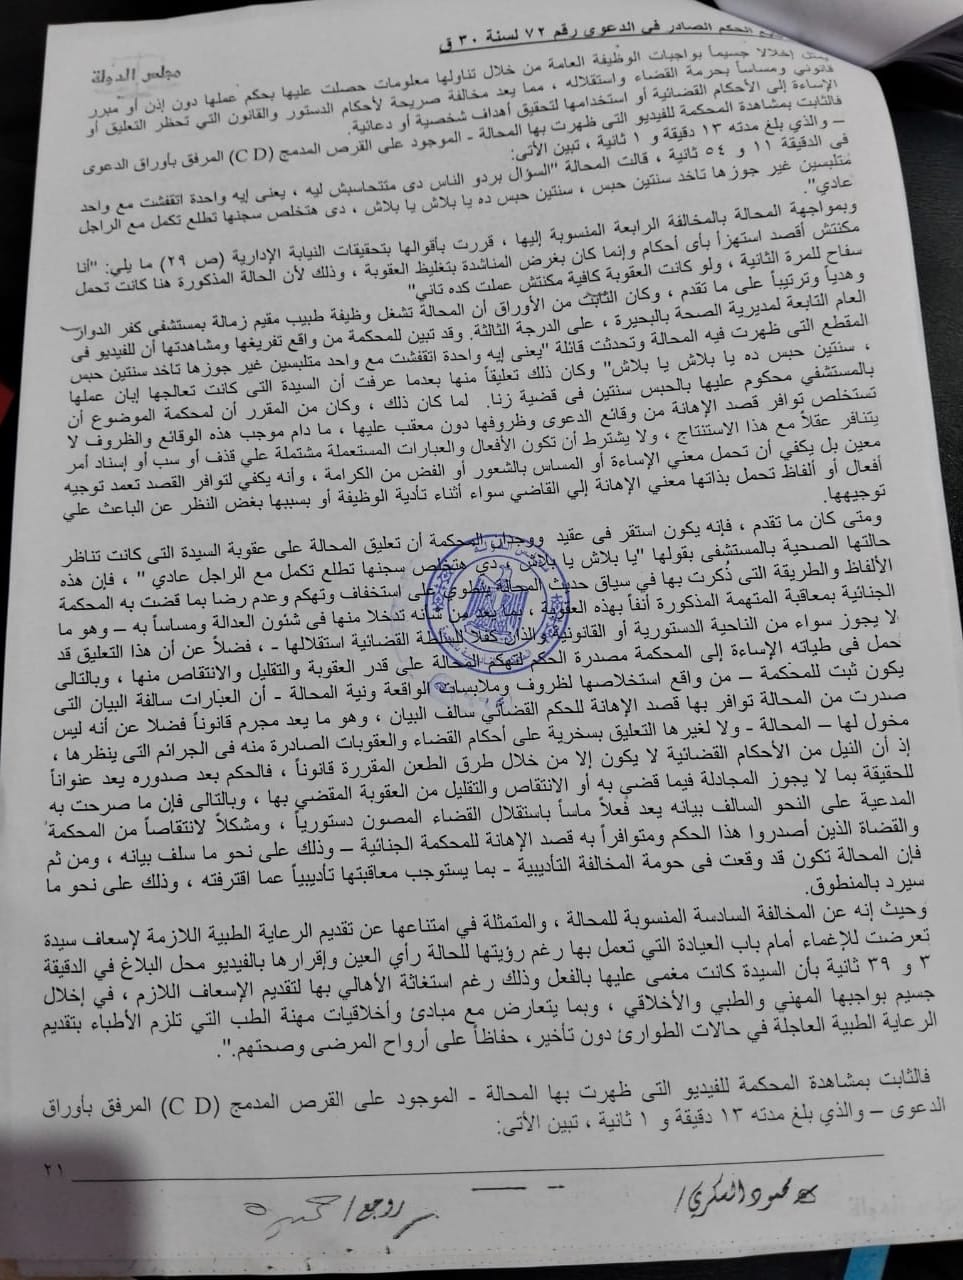 الحكم الصادر في الدعوى رقم ٧٢ لسنة ٣٠ ق
مجلس الدولة
إخلالا جسيماً بواجبات الوظيفة العامة من خلال تناولها معلومات حصلت عليها بحكم عملها دون إذن أو مبرر
قانوني ومساساً بحرمة القضاء واستقلاله ، مما يعد مخالفة صريحة لأحكام الدستور والقانون التي تحظر التعليق أو
الإساءة إلى الأحكام القضائية أو استخدامها لتحقيق أهداف شخصية أو دعائية.
فالثابت بمشاهدة المحكمة للفيديو التى ظهرت بها المحالة - الموجود على القرص المدمج (C D) المرفق بأوراق الدعوى
– والذي بلغ مدته ١٣ دقيقة و ١ ثانية ، تبين الأتى:
فى الدقيقة ١١ و ٥٤ ثانية ، قالت المحالة "السؤال بردو الناس دى متتحاسبش ليه ، يعنى إيه واحدة اتقفشت مع واحد
متلبسين غير جوزها تاخد سنتين حبس ، سنتين حبس ده يا بلاش يا بلاش ، دى هتخلص سجنها تطلع تكمل مع الراجل
عادي".
وبمواجهة المحالة بالمخالفة الرابعة المنسوبة إليها ، قررت بأقوالها بتحقيقات النيابة الإدارية (ص ٢٩) ما يلي: "أنا
مكنتش أقصد استهزأ بأى أحكام وإنما كان بغرض المناشدة بتغليظ العقوبة ، وذلك لأن الحالة المذكورة هنا كانت تحمل
سفاح للمرة الثانية ، ولو كانت العقوبة كافية مكنتش عملت كده تاني"
وهدياً وترتيباً على ما تقدم ، وكان الثابت من الأوراق أن المحالة تشغل وظيفة طبيب مقيم زمالة بمستشفى كفر الدوار
العام التابعة لمديرية الصحة بالبحيرة ، على الدرجة الثالثة. وقد تبين للمحكمة من واقع تفريغها ومشاهدتها أن للفيديو فى
المقطع التى ظهرت فيه المحالة وتحدثت قائلة "يعنى إيه واحدة اتقفشت مع واحد متلبسين غير جوزها تاخد سنتين حبس
، سنتين حبس ده يا بلاش يا بلاش" وكان ذلك تعليقاً منها بعدما عرفت أن السيدة التى كانت تعالجها إبان عملها
بالمستشفي محكوم عليها بالحبس سنتين فى قضية زنا. لما كان ذلك ، وكان من المقرر أن لمحكمة الموضوع أن
تستخلص توافر قصد الإهانة من وقائع الدعوى وظروفها دون معقب عليها ، ما دام موجب هذه الوقائع والظروف لا
يتنافر عقلاً مع هذا الاستنتاج ، ولا يشترط أن تكون الأفعال والعبارات المستعملة مشتملة علي قذف أو سب أو إسناد أمر
معين بل يكفي أن تحمل معني الإساءة أو المساس بالشعور أو الغض من الكرامة ، وأنه يكفي لتوافر القصد تعمد توجيه
أفعال أو ألفاظ تحمل بذاتها معني الإهانة إلي القاضي سواء أثناء تأدية الوظيفة أو بسببها بغض النظر عن الباعث علي
توجيهها.
ومتى كان ما تقدم ، فإنه يكون استقر فى عقيد ووجدان المحكمة أن تعليق المحالة على عقوبة السيدة التى كانت تناظر
حالتها الصحية بالمستشفى بقولها "يا بلاش يا بلاش ، دى هتخلص سجنها تطلع تكمل مع الراجل عادي " ، فإن هذه
الألفاظ والطريقة التى ذُكرت بها في سياق حديث المحالة ينطوى على استخفاف وتهكم وعدم رضا بما قضت به المحكمة
الجنائية بمعاقبة المتهمة المذكورة أنفاً بهذه العقوبة ، بما يعد من شأنه تدخلا منها فى شئون العدالة ومساساً به – وهو ما
لا يجوز سواء من الناحية الدستورية أو القانونية واللذان كفلا للسلطة القضائية استقلالها - ، فضلاً عن أن هذا التعليق قد
حمل فى طياته الإساءة إلى المحكمة مصدرة الحكم لتهكم المحالة على قدر العقوبة والتقليل والانتقاص منها ، وبالتالى
يكون ثبت للمحكمة – من واقع استخلاصها لظروف وملابسات الواقعة ونية المحالة - أن العبارات سالفة البيان التى
صدرت من المحالة توافر بها قصد الإهانة للحكم القضائي سالف البيان ، وهو ما يعد مجرم قانوناً فضلا عن أنه ليس
مخول لها – المحالة - ولا لغيرها التعليق بسخرية على أحكام القضاء والعقوبات الصادرة منه فى الجرائم التى ينظرها ،
إذ أن النيل من الأحكام القضائية لا يكون إلا من خلال طرق الطعن المقررة قانوناً ، فالحكم بعد صدوره يعد عنواناً
للحقيقة بما لا يجوز المجادلة فيما قضي به أو الانتقاص والتقليل من العقوبة المقضي بها ، وبالتالى فإن ما صرحت به
المدعية على النحو السالف بيانه يعد فعلاً ماساً باستقلال القضاء المصون دستورياً ، ومشكلاً لانتقاصاً من المحكمة
والقضاة الذين أصدروا هذا الحكم ومتوافراً به قصد الإهانة للمحكمة الجنائية – وذلك على نحو ما سلف بيانه ، ومن ثم
فإن المحالة تكون قد وقعت فى حومة المخالفة التأديبية - بما يستوجب معاقبتها تأديبياً عما اقترفته ، وذلك على نحو ما
سيرد بالمنطوق.
وحيث إنه عن المخالفة السادسة المنسوبة للمحالة ، والمتمثلة في امتناعها عن تقديم الرعاية الطبية اللازمة لإسعاف سيدة
تعرضت للإغماء أمام باب العيادة التي تعمل بها رغم رؤيتها للحالة رأي العين وإقرارها بالفيديو محل البلاغ في الدقيقة
٣ و ٣٩ ثانية بأن السيدة كانت مغمى عليها بالفعل وذلك رغم استغاثة الأهالي بها لتقديم الإسعاف اللازم ، في إخلال
جسيم بواجبها المهني والطبي والأخلاقي ، وبما يتعارض مع مبادئ وأخلاقيات مهنة الطب التي تلزم الأطباء بتقديم
الرعاية الطبية العاجلة في حالات الطوارئ دون تأخير، حفاظاً على أرواح المرضى وصحتهم.".
فالثابت بمشاهدة المحكمة للفيديو التى ظهرت بها المحالة - الموجود على القرص المدمج (C D) المرفق بأوراق
الدعوى – والذي بلغ مدته ١٣ دقيقة و ١ ثانية ، تبين الأتى:
٢١
محمود السكري/
روجع/